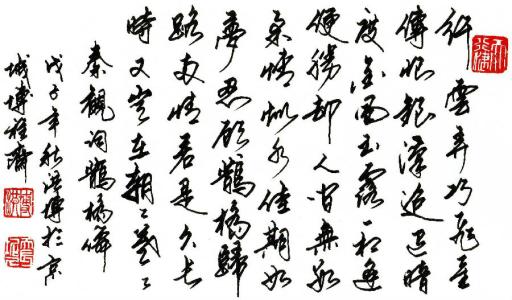 纤雲弄巧飛星
傳恨銀漢迢迢暗
度金風玉露一相逢
便勝却人間無數
柔情似水佳期如
夢忍顧鵲橋歸
路兩情若是久長
時又豈在朝〻暮〻
秦觀詞鵲橋僊
戊子年秋博於京
城博雅齋